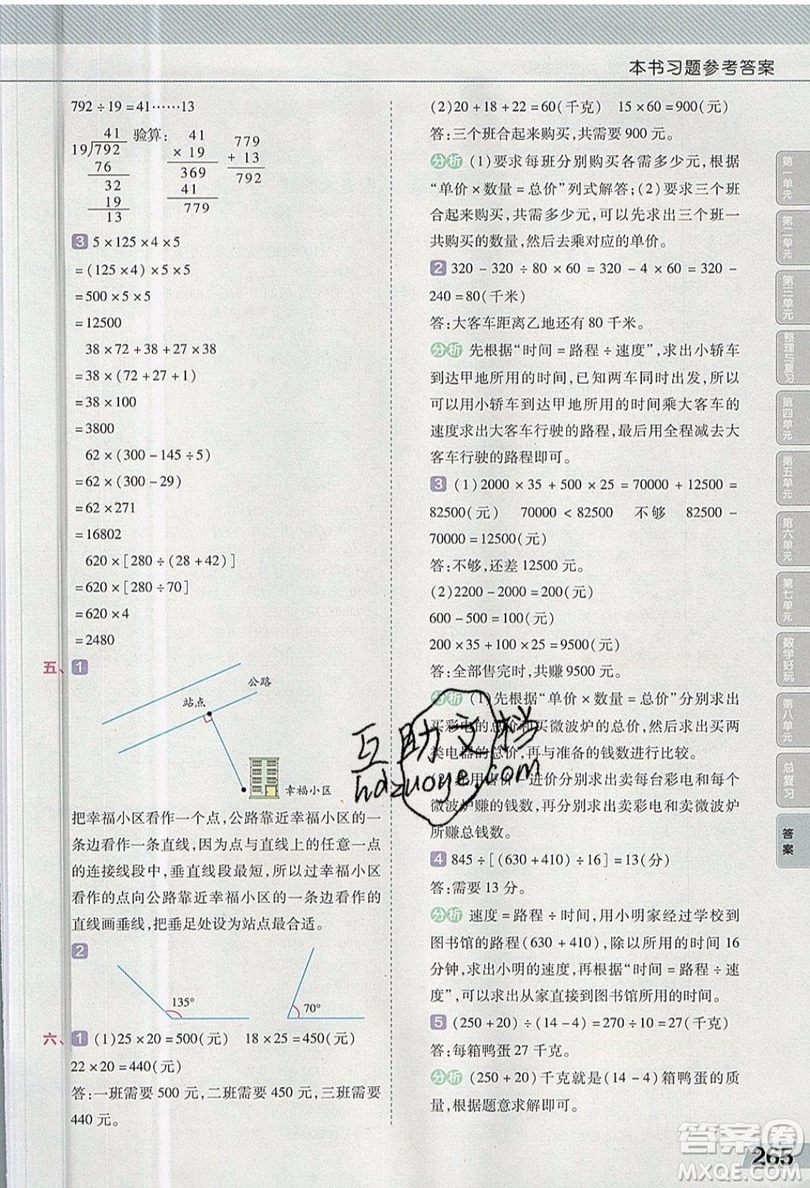 本书习题参考答案
792÷19=41……13
41
19)792
76
32
19
13
验算:
41
×19
369
41
779
779
+13
792
3 5×125×4×5
=(125×4)×5×5
=500×5×5
=12500
38×72+27×38+38
=38×(72+27+1)
=38×100
=3800
62×(300-145÷5)
=62×(300-29)
=62×271
=16802
620×[280÷(28+42)]
=620×[280÷70]
=620×4
=2480
五、1
公路
站点
幸福小区
把幸福小区看作一个点,公路靠近幸福小区的一
条边看作一条直线,因为点与直线上的任意一点
的连接线段中,垂直线段最短,所以过幸福小区
看作的点向公路靠近幸福小区的一条边看作的
直线画垂线,把垂足处设为站点最合适。
2
135°
70°
六、1 (1)25×20=500(元) 18×25=450(元)
22×20=440(元)
答:一班需要 500 元,二班需要 450 元,三班需要
440 元。
(2)20+18+22=60(千克) 15×60=900(元)
答:三个班合起来购买,共需要 900 元。
分析 (1)要求每班分别购买各需多少元,根据
“单价×数量=总价”列式解答;(2)要求三个班
合起来购买,共需多少元,可以先求出三个班一
共购买的数量,然后去乘对应的单价。
2 320-320÷80×60=320-4×60=320-
240=80(千米)
答:大客车距离乙地还有 80 千米。
分析 先根据“时间=路程÷速度”,求出小轿车
到达甲地所用的时间,已知两车同时出发,所以
可以用小轿车到达甲地所用的时间乘大客车的
速度求出大客车行驶的路程,最后用全程减去大
客车行驶的路程即可。
3 (1)2000×35+500×25=70000+12500=
82500(元) 70000<82500 不够 82500-
70000=12500(元)
答:不够,还差 12500 元。
(2)2200-2000=200(元)
600-500=100(元)
200×35+100×25=9500(元)
答:全部售完时,共赚 9500 元。
分析 (1)先根据“单价×数量=总价”分别求出
买彩电的总价和买微波炉的总价,从而求出买两
类电器的总价,再与准备的钱数进行比较。
(2)先用售价-进价分别求出卖每台彩电和每个
微波炉赚的钱数,进而求出卖彩电和卖微波炉
所赚总钱数。
4 845÷[(630+410)÷16]=13(分)
答:需要 13 分。
分析 速度=路程÷时间,用小明家经过学校到
图书馆的路程(630+410),除以所用的时间 16
分钟,求出小明的速度,再根据“时间=路程÷速
度”,可以求出从家直接到图书馆所用的时间。
5 (250+20)÷(14-4)=270÷10=27(千克)
答:每箱鸭蛋 27 千克。
分析 (250+20)千克就是(14-4)箱鸭蛋的质
量,根据题意求解即可。
第一单元
第二单元
第三单元
整理与复习
第四单元
第五单元
第六单元
第七单元
数学好玩
第八单元
总复习
答案
互助文档
hdzuoye.com
答案圈
MXQE.COM
265